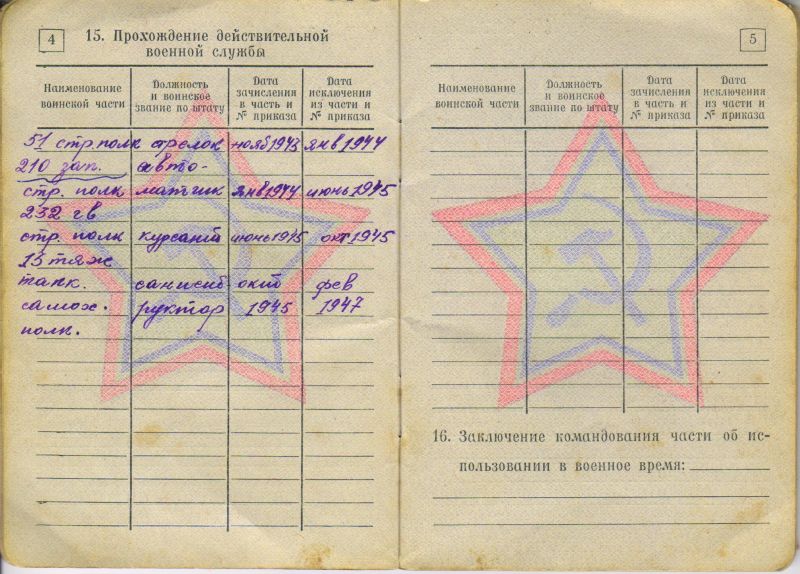 4
15. Прохождение действительной
военной службы
Наименование воинской части
Должность и воинское звание по штату
Дата зачисления в часть и № приказа
Дата исключения из части и № приказа
51 стр. полк стрелок нояб 1943 янв 1944
210 зап. авто-
стр. полк матчик янв 1944 июнь 1945
232 гв
стр. полк курсант июнь 1945 окт 1945
13 тяж
танк. санинст окт фев
самох. руктор 1945 1947
полк.
5
Наименование воинской части
Должность и воинское звание по штату
Дата зачисления в часть и № приказа
Дата исключения из части и № приказа
16. Заключение командования части об ис-
пользовании в военное время: